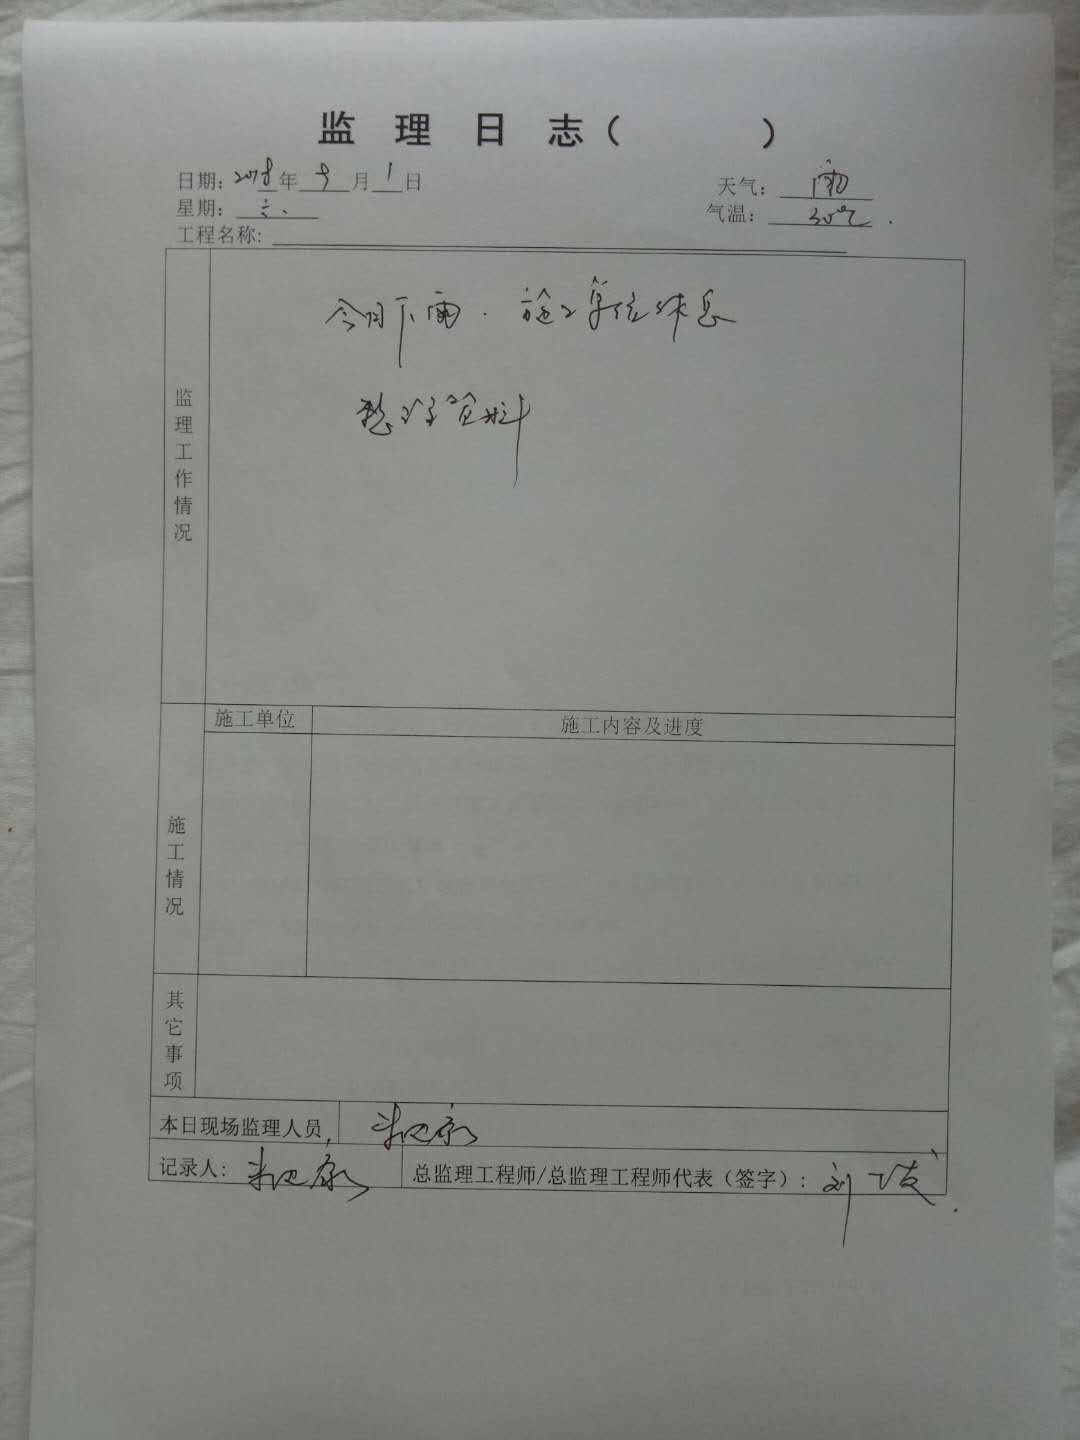 监 理 日 志（ ）
日期：2018年 9 月 1 日 天气：雨
星期：六、 气温：30℃.
工程名称:
监理工作情况
今日下雨．施工单位休息
整理资料
施工单位 施工内容及进度
施工情况
其它事项
本日现场监理人员
记录人： 总监理工程师/总监理工程师代表（签字）：刘